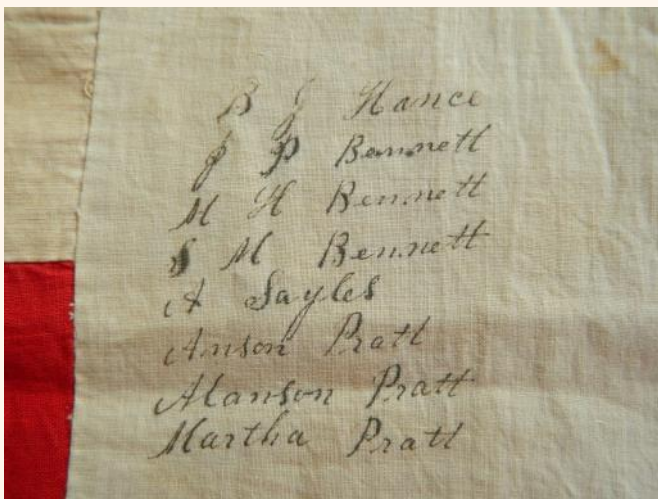 B J Hance
J P Bennett
M H Bennett
S M Bennett
A Sayles
Anson Pratt
Alanson Pratt
Martha Pratt